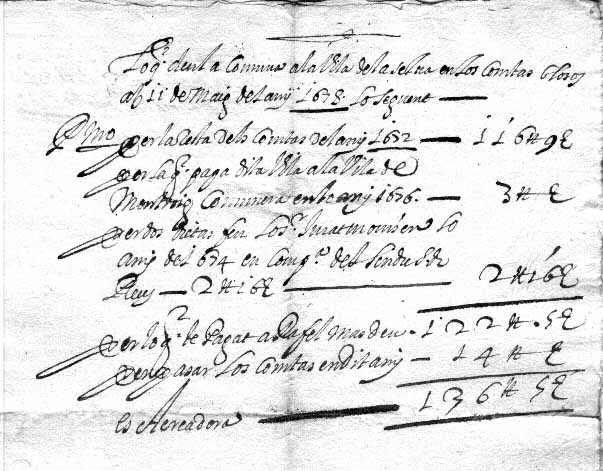 Lo q.e deu la Comuna a la Vila de la Selva en los Comtas closos
al 11 de Maig del any 1678 lo seguent —
P.mo per la resta dels Comtas del any 1652 — 116 ᵗᵗ 9 S
per la q.e paga dita Vila a la Vila de
Montroig Comunera en lo any 1676 — 3 ᵗᵗ S
per dos dietas feu lo S.r Jurat en lo
any de 1674 en Comp.a del Sindich
Reus — 2 ᵗᵗ 16 S — 2 ᵗᵗ 16 S
per lo q. te Pagat a Rafel Masdeu - 122 ᵗᵗ 5 S
per pasar los Comtas en dit any — 14 ᵗᵗ S
es Acreadora — 136 ᵗᵗ 5 S